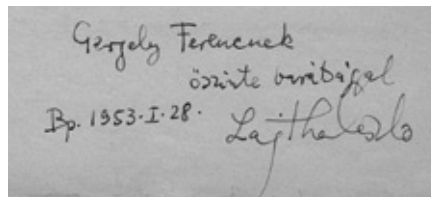 Gergely Ferencnek
őszinte barátsággal
Bp. 1953·I·28·
Lajtha László